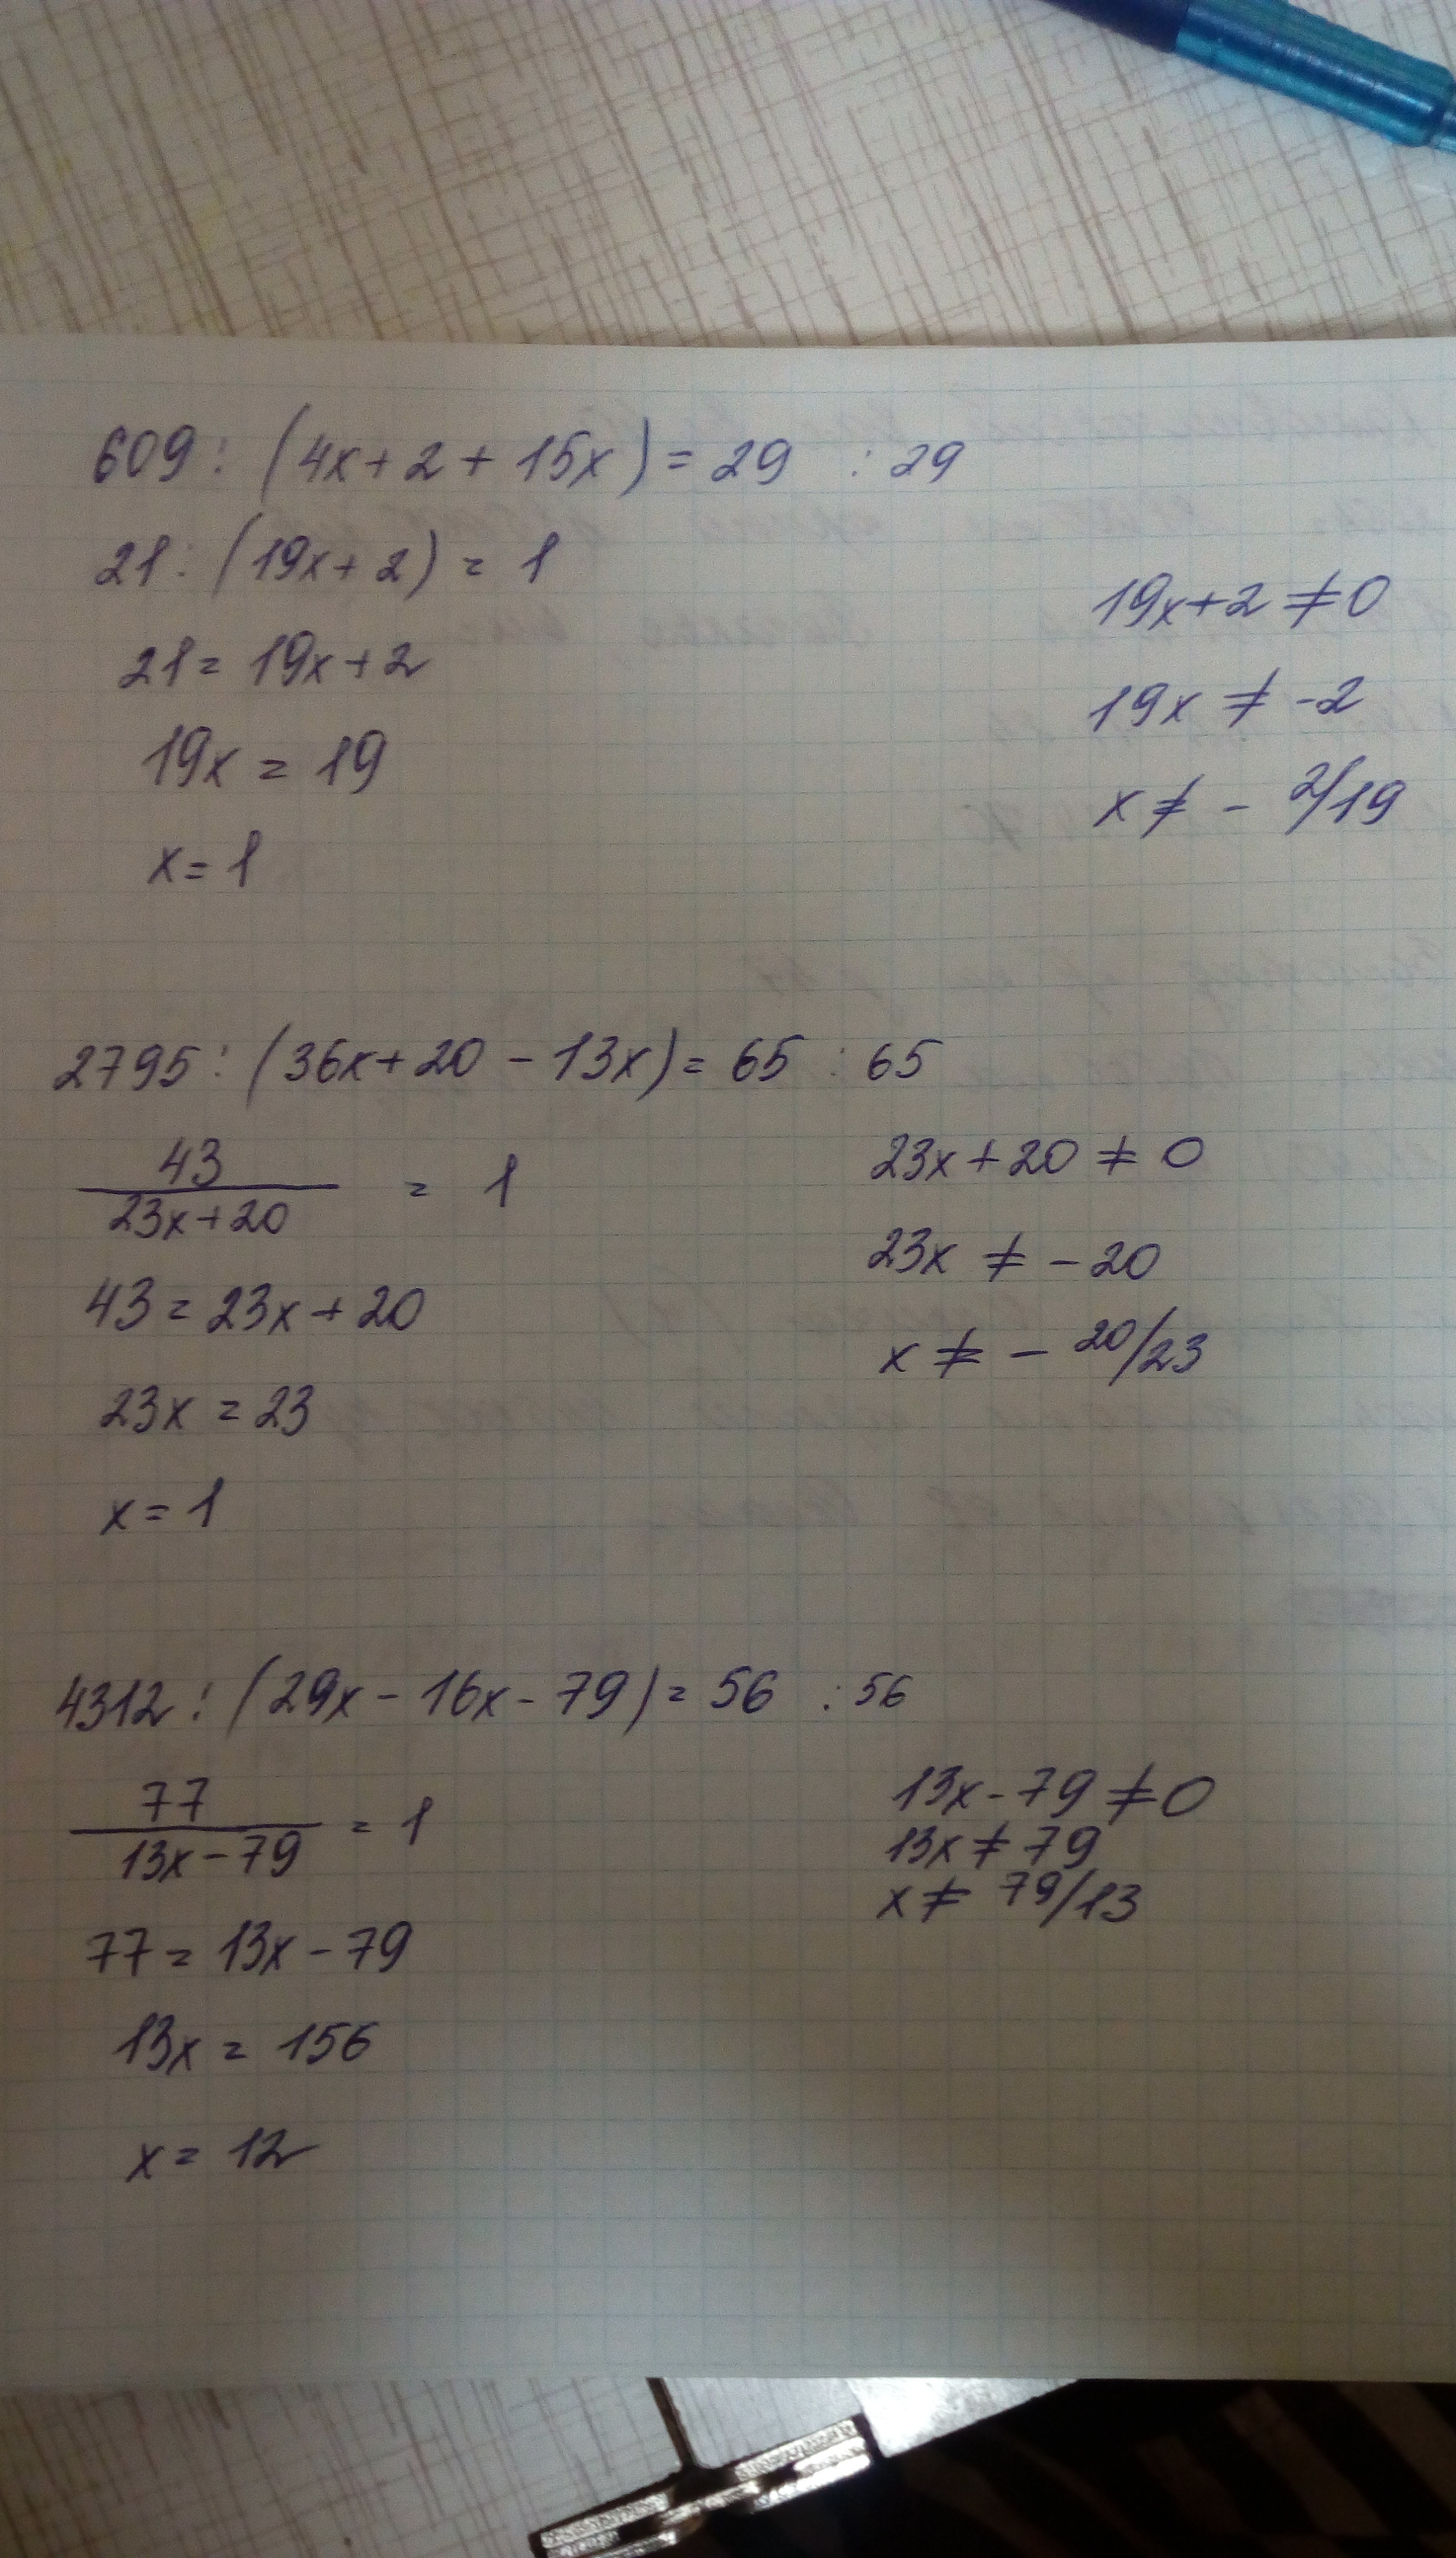 609 : (4x + 2 + 15x) = 29 : 29
21 : (19x + 2) = 1
21 = 19x + 2
19x = 19
x = 1
19x + 2 ≠ 0
19x ≠ -2
x ≠ - 2/19
2795 : (36x + 20 - 13x) = 65 : 65
43
23x + 20
= 1
43 = 23x + 20
23x = 23
x = 1
23x + 20 ≠ 0
23x ≠ - 20
x ≠ - 20/23
4312 : (29x - 16x - 79) = 56 : 56
77
13x - 79
= 1
77 = 13x - 79
13x = 156
x = 12
13x - 79 ≠ 0
13x ≠ 79
x ≠ 79/13